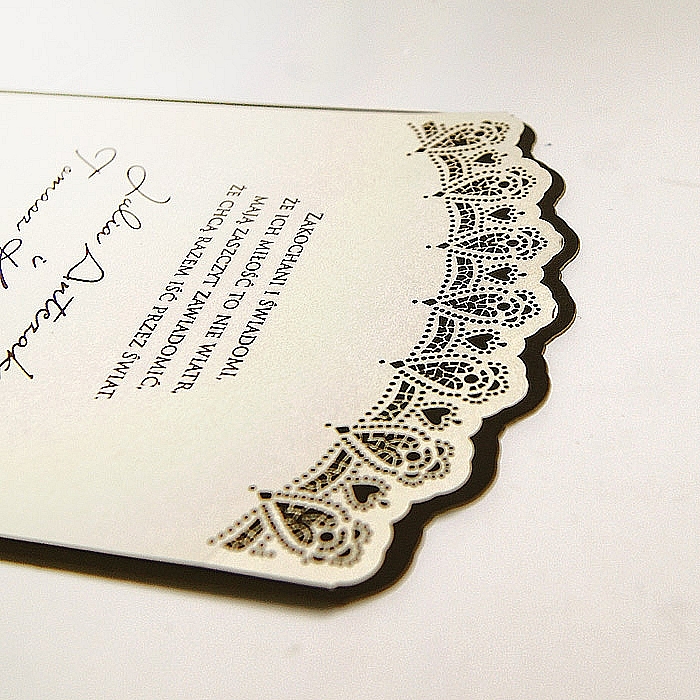 ZAKOCHANI I ŚWIADOMI,
ŻE ICH MIŁOŚĆ TO NIE WIATR,
MAJĄ ZASZCZYT ZAWIADOMIĆ,
ŻE CHCĄ RAZEM IŚĆ PRZEZ ŚWIAT.
Julia
i
Tomasz